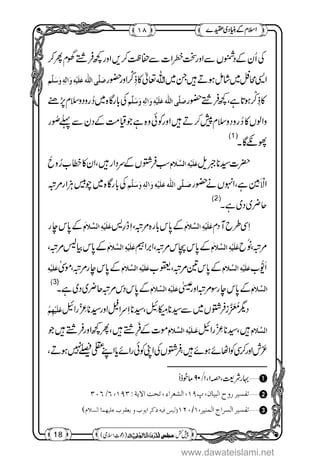 اسلام کے بنیادی عقیدے
۱۸
کی اُن کے دشمنوں سے اور سخت خطرات سے حفاظت کریں اور کچھ فرشتے گھوم پھر کر
ایسی محافل میں شامل ہوتے ہیں جن میں اللہ تعالٰی کا ذِکْر اور حضور صَلَّی اللہُ عَلَیْہِ وَاٰلِہٖ وَسَلَّم
کا ذِکْر ہوتا ہے، کچھ فرشتے حضور صَلَّی اللہُ عَلَیْہِ وَاٰلِہٖ وَسَلَّم کی بارگاہ میں دُرود و سلام پڑھنے
والوں کا دُرود و سلام پیش کرتے ہیں اور کوئی وہ ہے جو قیامت کے دن سے پہلے صُور
پھونکے گا۔(1)
حضرت سیدنا جبریل عَلَیْہِ السَّلَام سب فرشتوں کے سردار ہیں، ان کا خطاب رُوحُ
الْاَمِیْن ہے، انہوں نے حضور صَلَّی اللہُ عَلَیْہِ وَاٰلِہٖ وَسَلَّم کی بارگاہ میں چوبیس ہزار مرتبہ
حاضری دی ہے۔(2)
اسی طرح آدم عَلَیْہِ السَّلَام کے پاس بارہ مرتبہ، اِدریس عَلَیْہِ السَّلَام کے پاس چار
مرتبہ، نُوح عَلَیْہِ السَّلَام کے پاس پچاس مرتبہ، ابراہیم عَلَیْہِ السَّلَام کے پاس بیالیس مرتبہ،
اَیُّوب عَلَیْہِ السَّلَام کے پاس تین مرتبہ، یعقوب عَلَیْہِ السَّلَام کے پاس چار مرتبہ، موسیٰ عَلَیْہِ
السَّلَام کے پاس چار سو مرتبہ اور عیسیٰ عَلَیْہِ السَّلَام کے پاس دس مرتبہ حاضری دی ہے۔(3)
دیگر مُعَزَّز فرشتوں میں سے سیدنا میکائیل، سیدنا اِسرافیل اور سیدنا عزرائیل عَلَیْہِمُ
السَّلَام ہیں، سیدنا عزرائیل عَلَیْہِ السَّلَام موت کے فرشتے ہیں، اور کچھ فرشتے ہیں جو
عَرْش اور کرسی کو اٹھائے ہوئے ہیں، فرشتوں کی اپنی کوئی رائے یا اپنے فیصلے نہیں ہوتے،
1 ... بہار شریعت، حصہ ۱، ۱/۹۰ ماخوذاً
2 ... تفسیر روح البیان، پ۱۹، الشعراء، تحت الآیة: ۱۹۳، ۶/۳۰۶
3 ... تفسیر السراج المنیر، ۱/۱۲۰ (ولیس فیہ ذکر ایوب و یعقوب علیہما السلام)
18
پیش کش:
(دعوتِ اسلامی)
www.dawateislami.net